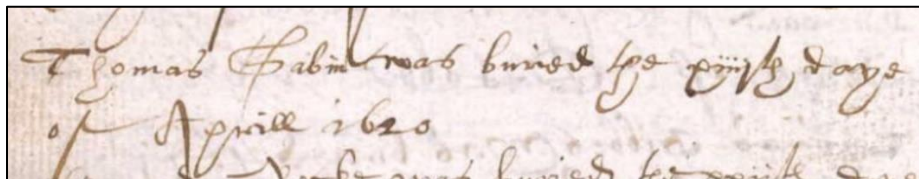 Thomas Gabin was buried the xiijth daye
of Aprill 1620
was buried the daye